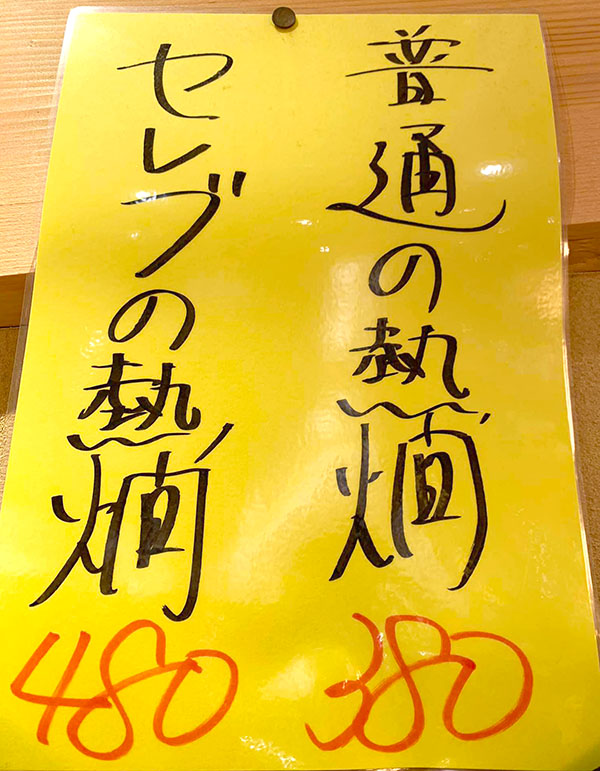 普通の熱燗
380
セレブの熱燗
480